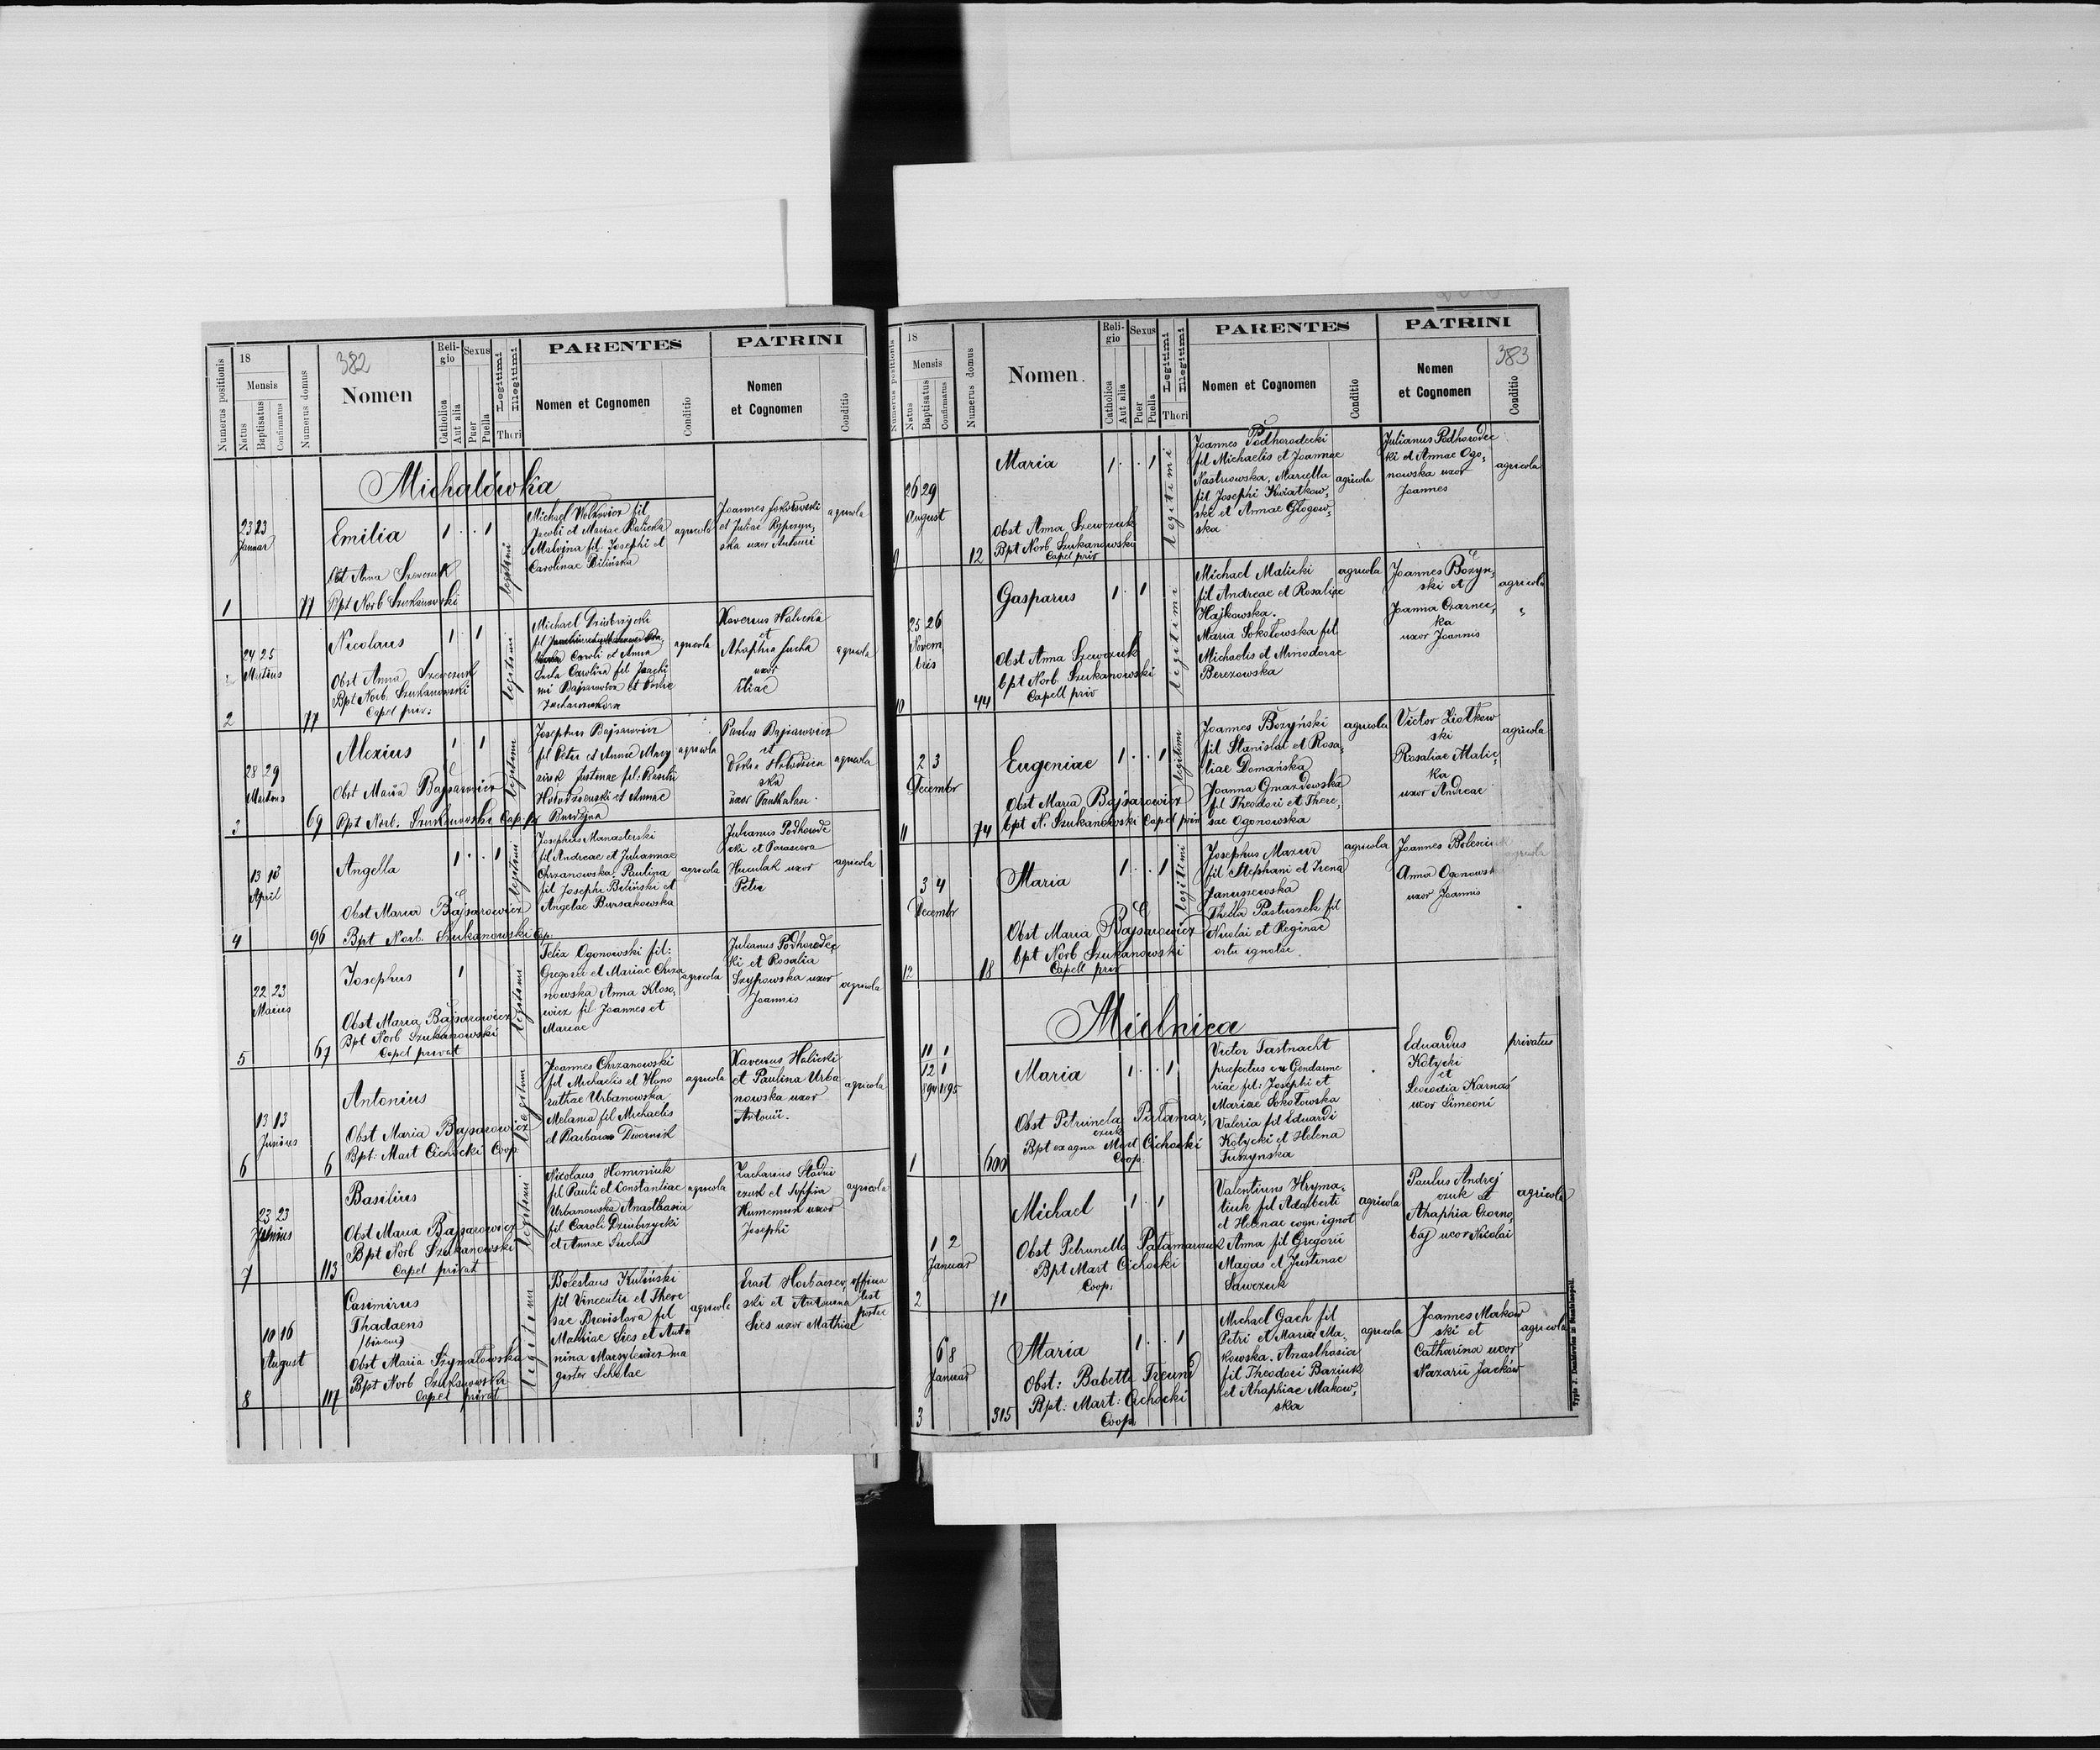 382
Numerus positionis
18
Mensis
Natus
Baptisatus
Confirmatus
Numerus domus
Nomen
Reli-
gio
Catholica
Aut alia
Sexus
Puer
Puella
Legitimi
Illegitimi
Thori
PARENTES
Nomen et Cognomen
Conditio
PATRINI
Nomen
et Cognomen
Conditio
Michalówka
1
23 23
Januar
77
Emilia
1 . . 1
Obst Anna Szewczuk
Bpt Norb Szukanowski
legitimi
Michael Wolkowicz fil
Jacobi et Mariae Halicka
Malvina fil. Josephi et
Carolinae Bilińska
agricola
Joannes Sokołowski
et Juliae
ska uxor Antonii
agricola
2
24 25
Martius
77
Nicolaus
1 . 1
Obst Anna Szewczuk
Bpt Norb. Szukanowski
Capel priv.
legitimi
Michael Dziubrzycki
fil
Caroli et Anna
Sucha Carolina fil Joachi
mi Bajsarowicz et
agricola
Xaverius Halicki
et
Ahaphia Sucha
uxor
Eliae
agricola
3
28 29
Martius
69
Alexius
1 . 1
Obst Maria Bajsarowicz
Bpt Norb. Szukanowski Cap. pr
legitimi
Josephus Bajsarowicz
fil Petri et Annae
Justinae fil. Basilii
et Annae
agricola
Paulus Bajsarowicz
et
ska
uxor
agricola
4
13 13
April
96
Angella
1 . . 1
Obst Maria Bajsarowicz
Bpt Norb. Szukanowski Cap.
legitimi
Josephus Manasterski
fil Andreae et Juliannae
Chrzanowska, Paulina
fil Josephi Biliński et
Angelae Bursakowska
agricola
Julianus Podhorode
cki et Parascera
Huculak uxor
Petri
agricola
5
22 23
Maius
67
Josephus
1
Obst Maria Bajsarowicz
Bpt Norb Szukanowski
Capel privat
legitimi
Felix Ogonowski fil:
Gregorii et Mariae Chrza
nowska Anna Kłoso
wicz fil Joannes et
Mariae
agricola
Julianus Podhorodec
ki et Rosalia
Szypowska uxor
Joannis
agricola
6
13 13
Junius
6
Antonius
Obst Maria Bajsarowicz
Bpt: Mart Cichocki Coop.
legitimi
Joannes Chrzanowski
fil Michaelis et Hono
rathae Urbanowska
Melania fil Michaelis
et Barbarae Dwornik
agricola
Xaverius Halicki
et Paulina Urba
nowska uxor
Antonii.
agricola
7
23 23
Julius
113
Basilius
Obst Maria Bajsarowicz
Bpt Norb Szukanowski
Capel privat
legitimi
Nicolaus Hominiuk
fil Pauli et Constantiae
Urbanowska Anasthasia
fil Caroli Dziubrzycki
et Annae Sucha
agricola
Zacharius Stadni
czuk et Sophia
uxor
Josephi
agricola
8
10 16
August
117
Casimirus
Thadaeus
Obst Maria Szymałowska
Bpt Norb Szukanowski
Capel privat
legitimi
Boleslaus Kuliński
fil Vincentii et There
sae Bronislava fil
Mathiae Sies et Anto
nina
gister Scholae
agricola
Erast Horbaczew
ski et Antonina
Sies uxor Mathiae
383
Numerus positionis
18
Mensis
Natus
Baptisatus
Confirmatus
Numerus domus
Nomen.
Reli-
gio
Catholica
Aut alia
Sexus
Puer
Puella
Legitimi
Illegitimi
Thori
PARENTES
Nomen et Cognomen
Conditio
PATRINI
Nomen
et Cognomen
Conditio
9
26 29
August
12
Maria
1 . . 1
Obst Anna Szewczuk
Bpt Norb. Szukanowski
Capel priv
legitimi
Joannes Podhorodecki
fil Michaelis et Joannae
Nastrowska, Marcella
fil Josephi Kwiatkow,
ski et Annae Głogow,
ska
agricola
Julianus Podhorodec
ki et Annae Ogo,
nowska uxor
Joannes
agricola
10
25 26
Novem
bris
44
Gasparus
1 . 1
Obst Anna Szewczuk
bpt Norb. Szukanowski
Capell priv
legitimi
Michael Malicki
fil Andreae et Rosaliae
Hajkowska.
Maria Sokołowska fil
Michaelis et Minodorae
Berezowska
agricola
Joannes Bożyn,
ski et
Joanna Czarnec,
ka
uxor Joannis
agricola
"
11
2 3
Decembr
74
Eugeniae
1 . . 1
Obst Maria Bajsarowicz
bpt N. Szukanowski Capel priv
legitimi
Joannes Bożyński
fil Stanislai et Rosa,
liae Domańska
Joanna Gnazdowska
fil Theodori et There,
sae Ogonowska
agricola
Victor Ziołkow
ski
Rosaliae Malic,
ka
uxor Andreae
agricola
12
3 4
Decembr
18
Maria
1 . . 1
Obst Maria Bajsarowicz
bpt Norb Szukanowski
Capell priv
legitimi
Josephus Mazur
fil Stephani et Irena
Januszewska
Thecla Pastuszek fil
Nicolai et Reginae
ortu ignotae
agricola
Joannes
Anna Ogonowsk
uxor Joannis
agricola
Mielnica
1
11 1
12 1
894 1895
600
Maria
1 . . 1
Obst Petrunela Patamar,
czuk
Bpt ex aqua Mart Cichocki
Coop.
Victor Fastnacht
praefectus Gendarme
riae fil: Josephi et
Mariae Sokołowska
Valeria fil Eduardi
Kotycki et Helena
Tuszynska
Eduardus
Kotycki
et
Leocadia Karnas
uxor Simeoni
privatus
2
1 2
Januar
71
Michael
1 . 1
Obst Petrunella Patamarczuk
Bpt Mart Cichocki
Coop.
Valentinus Hryma,
tiuk fil Adalberti
et Helenae cogn. ignot
Anna fil Gregorii
Magas et Justinae
Sawczuk
agricola
Paulus Andrej
czuk et
Ahaphia Czorno,
baj uxor Nicolai
agricola
3
6 8
Januar
315
Maria
1 . . 1
Obst: Babette Freund
Bpt: Mart: Cichocki
Coop.
Michael Gach fil
Petri et Maria Ma,
kowska. Anasthasia
fil Theodori Baziuk
et Ahaphiae Makow,
ska
agricola
Joannes Makow
ski et
Catharina uxor
Nazarii Jacków
agricola